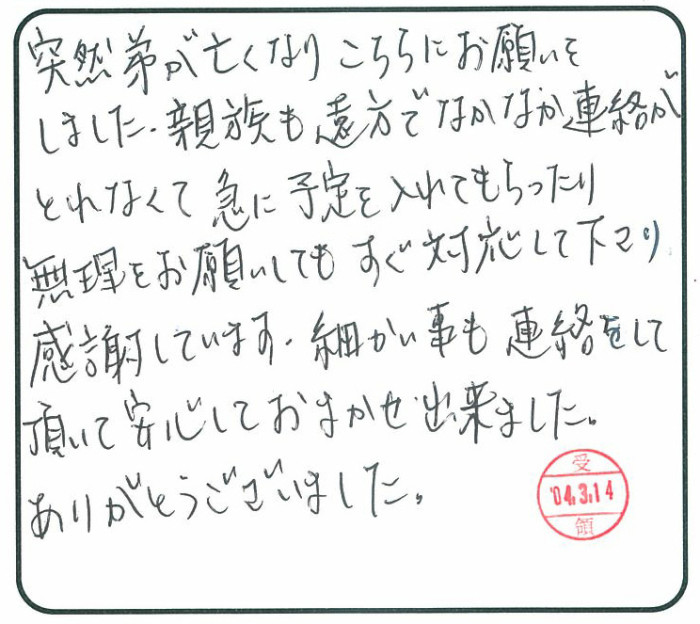 突然弟が亡くなりこちらにお願いを
しました.親族も遠方でなかなか連絡が
とれなくて急に予定を入れてもらったり
無理をお願いしてもすぐ対応して下さり
感謝しています.細かい事も連絡をして
頂いて安心しておまかせ出来ました。
ありがとうございました。
受
'04.3.14
領